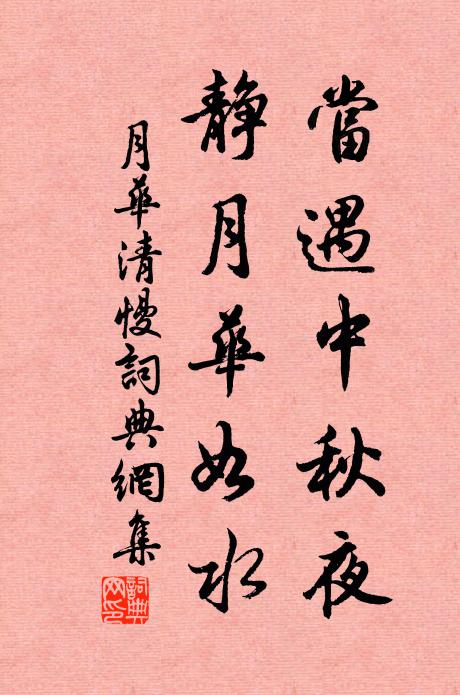 當遇中秋夜
靜月華如水
月華清慢詞典網集
詞典网印